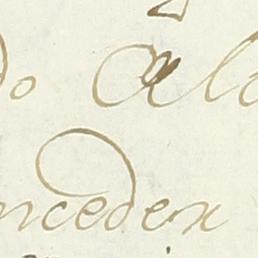 do Ala
nceder